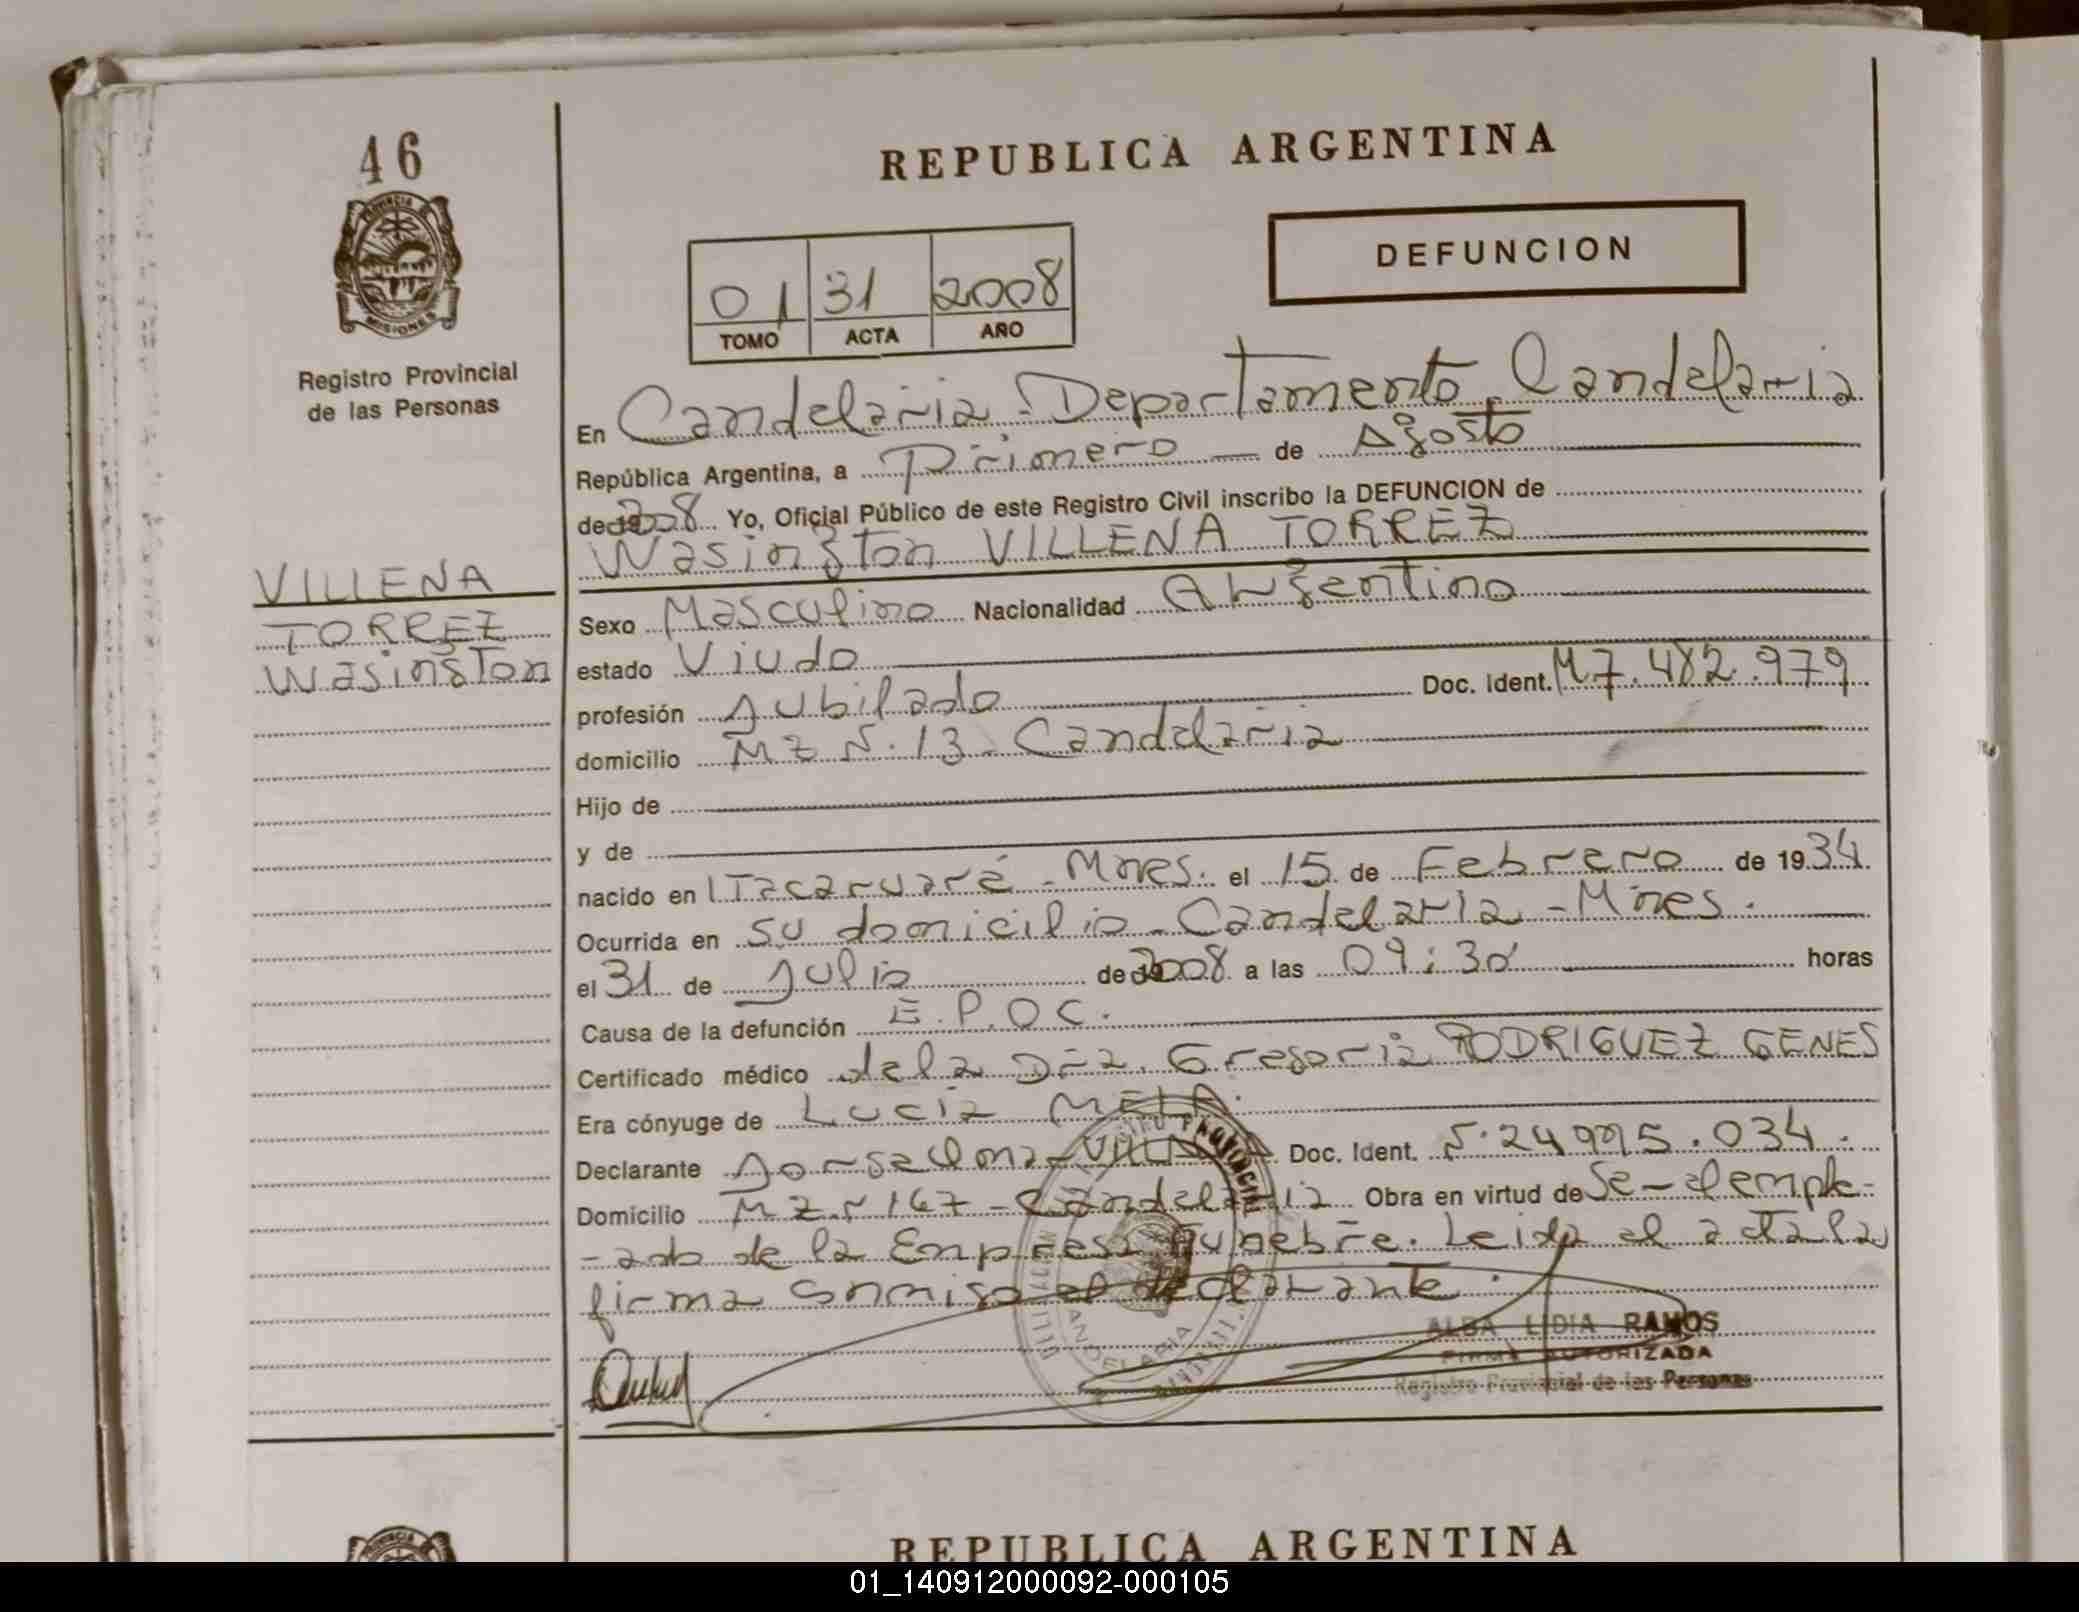 46
PROVINCIA
MISIONES
Registro Provincial
de las Personas
REPUBLICA ARGENTINA
DEFUNCION
01 31 2008
TOMO ACTA AÑO
En Candelaria - Departamento Candelaria
República Argentina, a Primero de Agosto
de 2008 Yo, Oficial Público de este Registro Civil inscribo la DEFUNCION de
Wasington VILLENA TORREZ
VILLENA
TORREZ
Wasington
Sexo Masculino Nacionalidad Argentino
estado Viudo
profesión Jubilado Doc. Ident. M7.482.979
domicilio MZ N. 13 - Candelaria
Hijo de
y de
nacido en Itacaruaré - Mnes. el 15 de Febrero de 1934.
Ocurrida en su domicilio - Candelaria - Mnes.
el 31 de Julio de 2008 a las 09:30 horas
Causa de la defunción E.P.O.C.
Certificado médico de la Dra. Gregoria RODRIGUEZ GENES
Era cónyuge de Lucia
Declarante Doc. Ident.
Domicilio MZ N 167 - Candelaria Obra en virtud de Ser el emple-
-ado de la Empresa Funebre. Leida el acta la
firma conmigo el declarante.
PROVINCIAL
CANDELARIA
ALBA LIDIA RAMOS
FIRMA AUTORIZADA
Registro Provincial de las Personas
PROVINCIA
REPUBLICA ARGENTINA
01_140912000092-000105